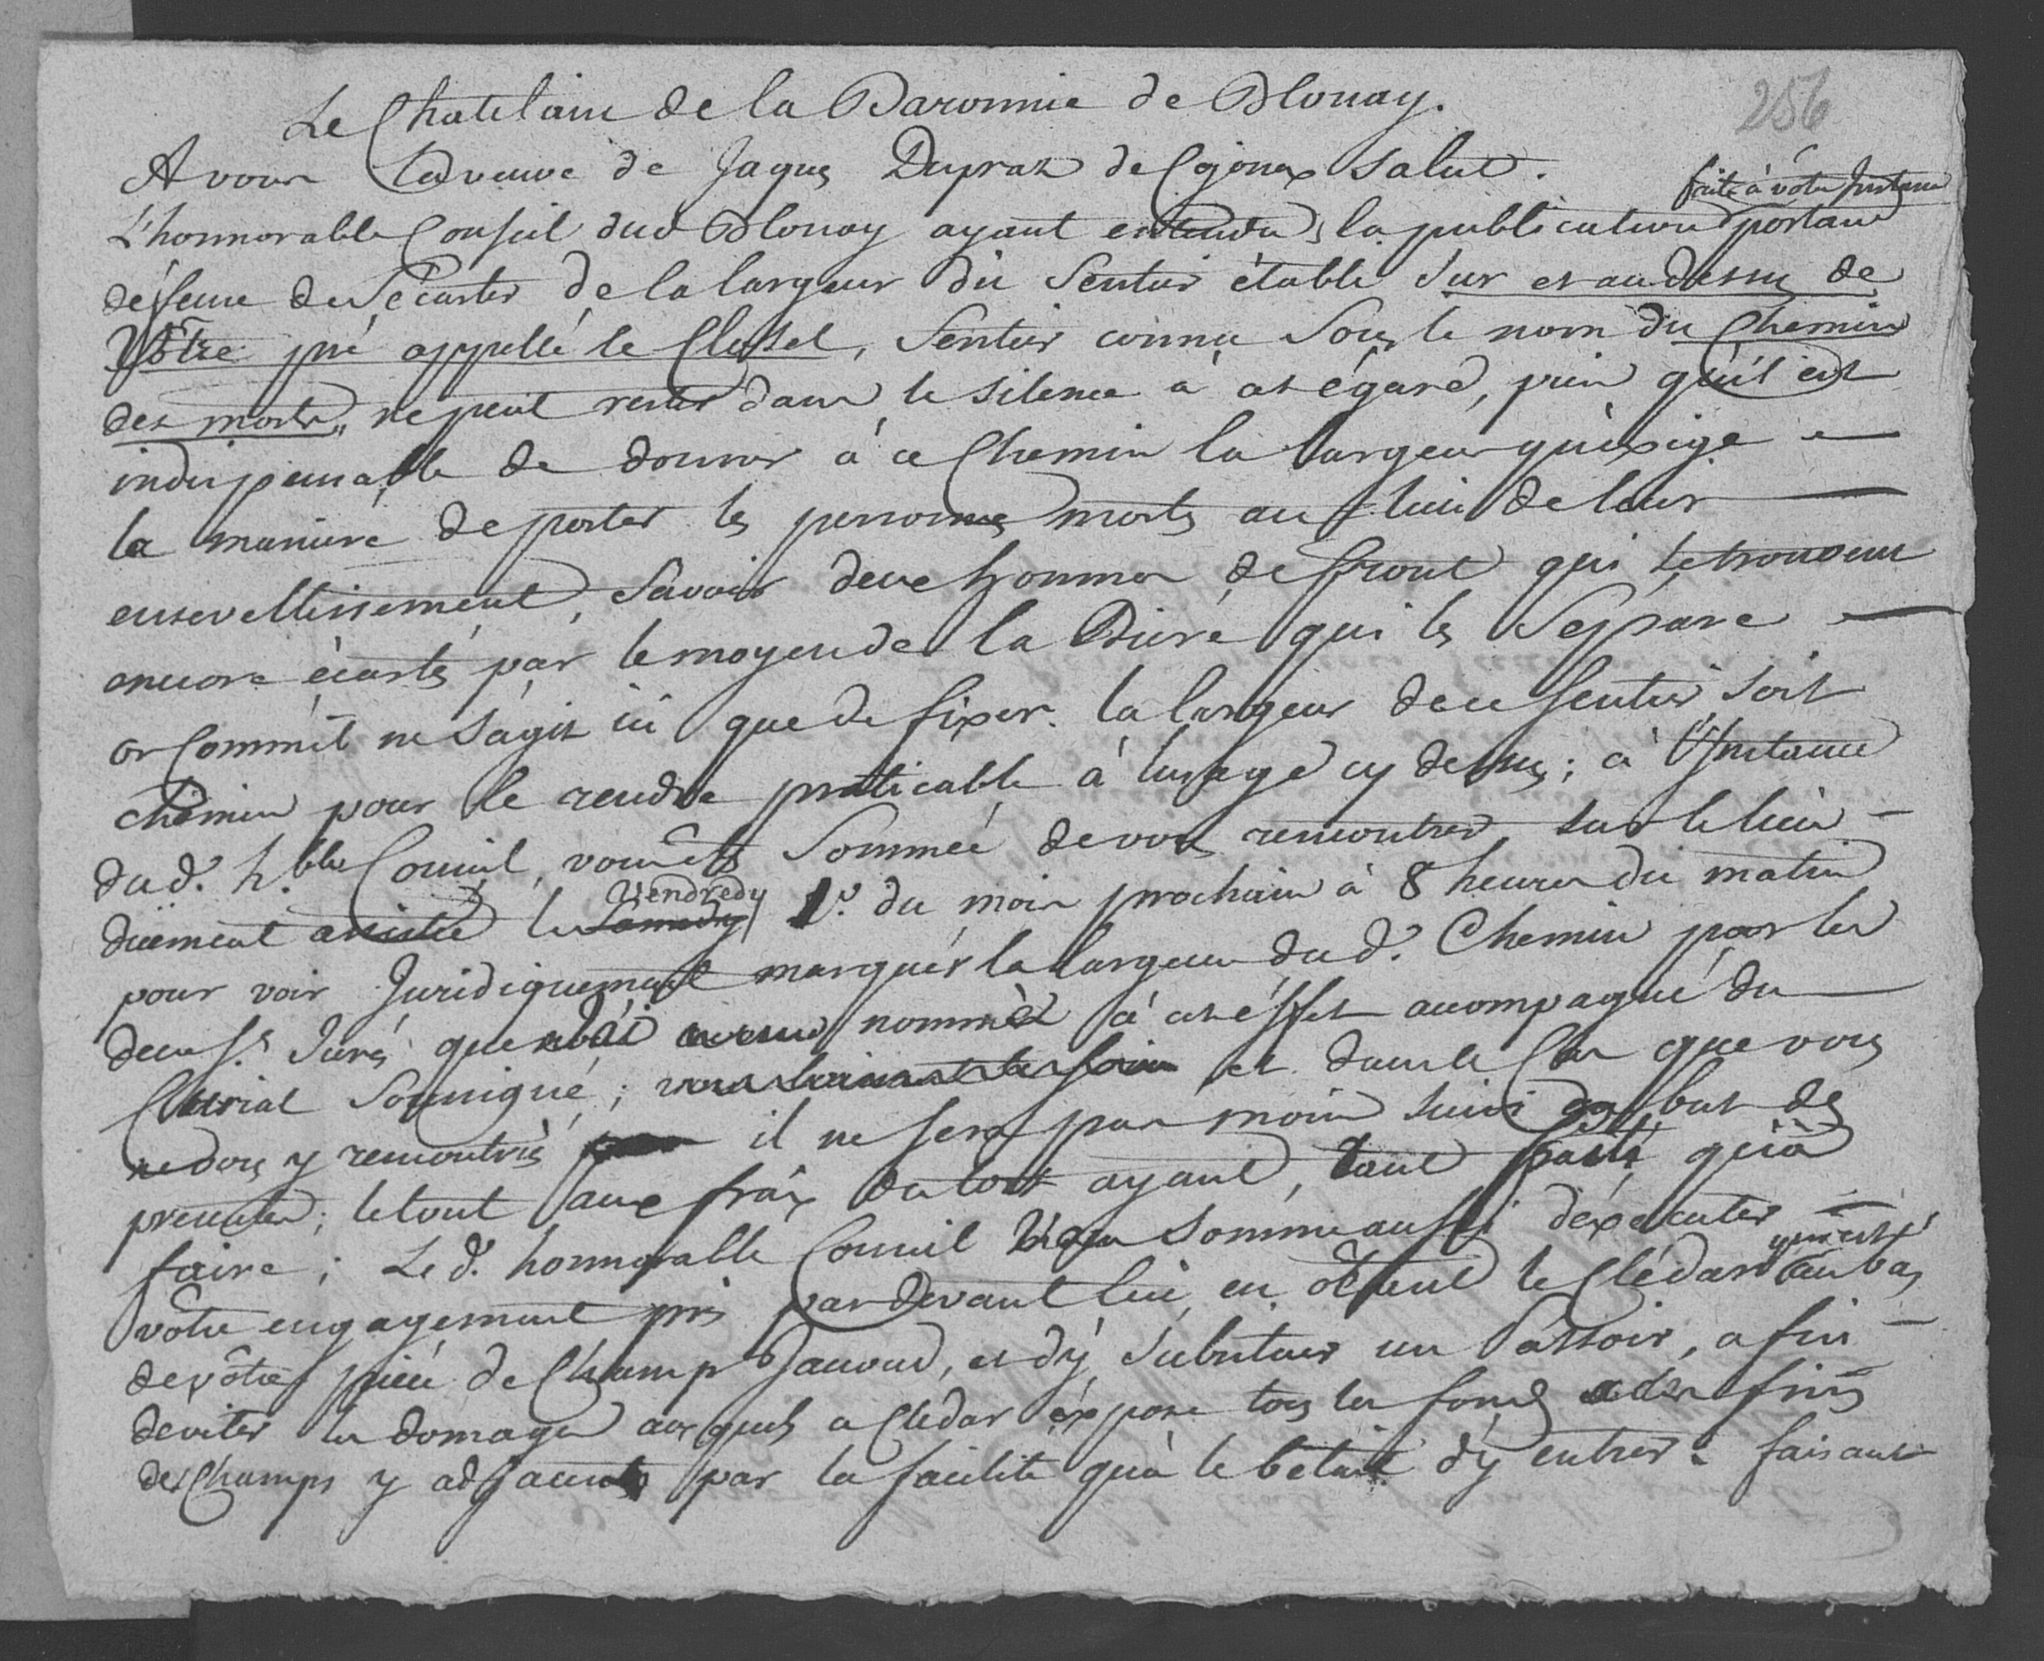 256
Le Chatelain de la Baronnie de Blonay.
A vous la veuve de Jaques Dupraz de Cojonex salut.
faite à vôtre Instance
L'honnorable Conseil dud Blonay ayant entendu, la publication portant
défense de s'écarter de la largeur du Sentier établi sur et au dessus de
Vôtre pré appellé le Clusel, Sentier connu sous le nom du Chemin
des morts, ne peut rester dans le silence à cet égard, puis qu'il est
indispensable de donner à ce Chemin la largeur qu'exige
la maniére de porter les personnes morts au lieu de leur
ensevelissement, savoir deux hommes de front qui se trouvent
encore écartés par le moyen de la Biére qui les Sépare
or Comm'il ne s'agit ici que de fixer la largeur de ce sentier soit
chemin pour le rendre praticable à l'usage cy dessus; à l'Instance
dud. h.ble Conseil, vous êtes sommée de vous rencontrer sur le lieu
Vendredy
duement assistée le Samedy 1r. du mois prochain à 8 heures du matin
pour voir Juridiquement marquér la largeur dud. Chemin par les
deux Srs. Jurés que j'ai nommés à cet éffet accompagné du
Curial Soussigné; et dans le Cas que vous
ne vous y rencontriés il ne sera pas moins suivi au but des
présentes; le tout aux fraix du tort ayant, tant faits, qu'à
faire; Le d. honnorable Conseil vous somme aussi d'éxécuter
qui est
vôtre engagement pris par devant lui en ôtant le Clédar au bas
de vôtre piéce de Champ Jacoud, et d'y substituer un Passoir, afin
d'eviter les domages auxquels ce Cledar éxpose tous les fonds et les fruits
des Champs y adjacents par la facilité qu'à le bétail d'y entrer. faisant